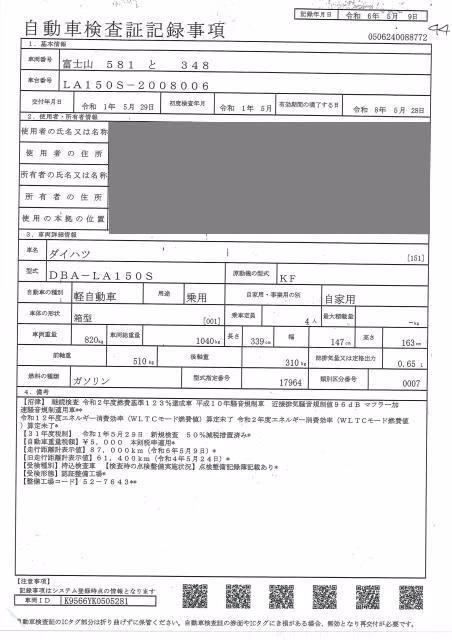 記録年月日 令和 6年 5月 9日
自動車検査証記録事項
0506240088772
44
1．基本情報
車両番号 富士山 581 と 348
車台番号 LA150S-2008006
交付年月日 令和 1年 5月 29日 初度検査年月 令和 1年 5月 有効期間の満了する日 令和 8年 5月 28日
2．使用者・所有者情報
使用者の氏名又は名称
使用者の住所
所有者の氏名又は名称
所有者の住所
使用の本拠の位置
3．車両詳細情報
車名 ダイハツ [151]
型式 DBA-LA150S 原動機の型式 KF
自動車の種別 軽自動車 用途 乗用 自家用・事業用の別 自家用
車体の形状 箱型 [001] 乗車定員 4人 最大積載量 -kg
車両重量 820kg 車両総重量 1040kg 長さ 339cm 幅 147cm 高さ 163cm
前軸重 510kg 後軸重 310kg 総排気量又は定格出力 0.65 L
燃料の種類 ガソリン 型式指定番号 17964 類別区分番号 0007
4．備考
【沼津】 継続検査 令和2年度燃費基準123％達成車 平成10年騒音規制車 近接排気騒音規制値96dB マフラー加
速騒音規制適用車**
令和12年度エネルギー消費効率（WLTCモード燃費値）算定未了 令和2年度エネルギー消費効率（WLTCモード燃費値
）算定未了*
【31年度税制】 令和1年5月29日 新規検査 50％減税措置済み*
【自動車重量税額】 ¥5,000 本則税率適用*
【走行距離計表示値】 87,000km（令和6年5月9日）*
【旧走行距離計表示値】 61,400km（令和4年5月24日）*
【受検種別】 持込検査車 【検査時の点検整備実施状況】 点検整備記録簿記載あり*
【受検形態】 認証整備工場*
【整備工場コード】 52-7643**
【注意事項】
記録事項はシステム登録時点の情報となります
車両ID K9566YK0505281
自動車検査証のICタグ部分は折り曲げずに保管ください。自動車検査証の券面やICタグにき損がある場合、無効となり再交付が必要です。